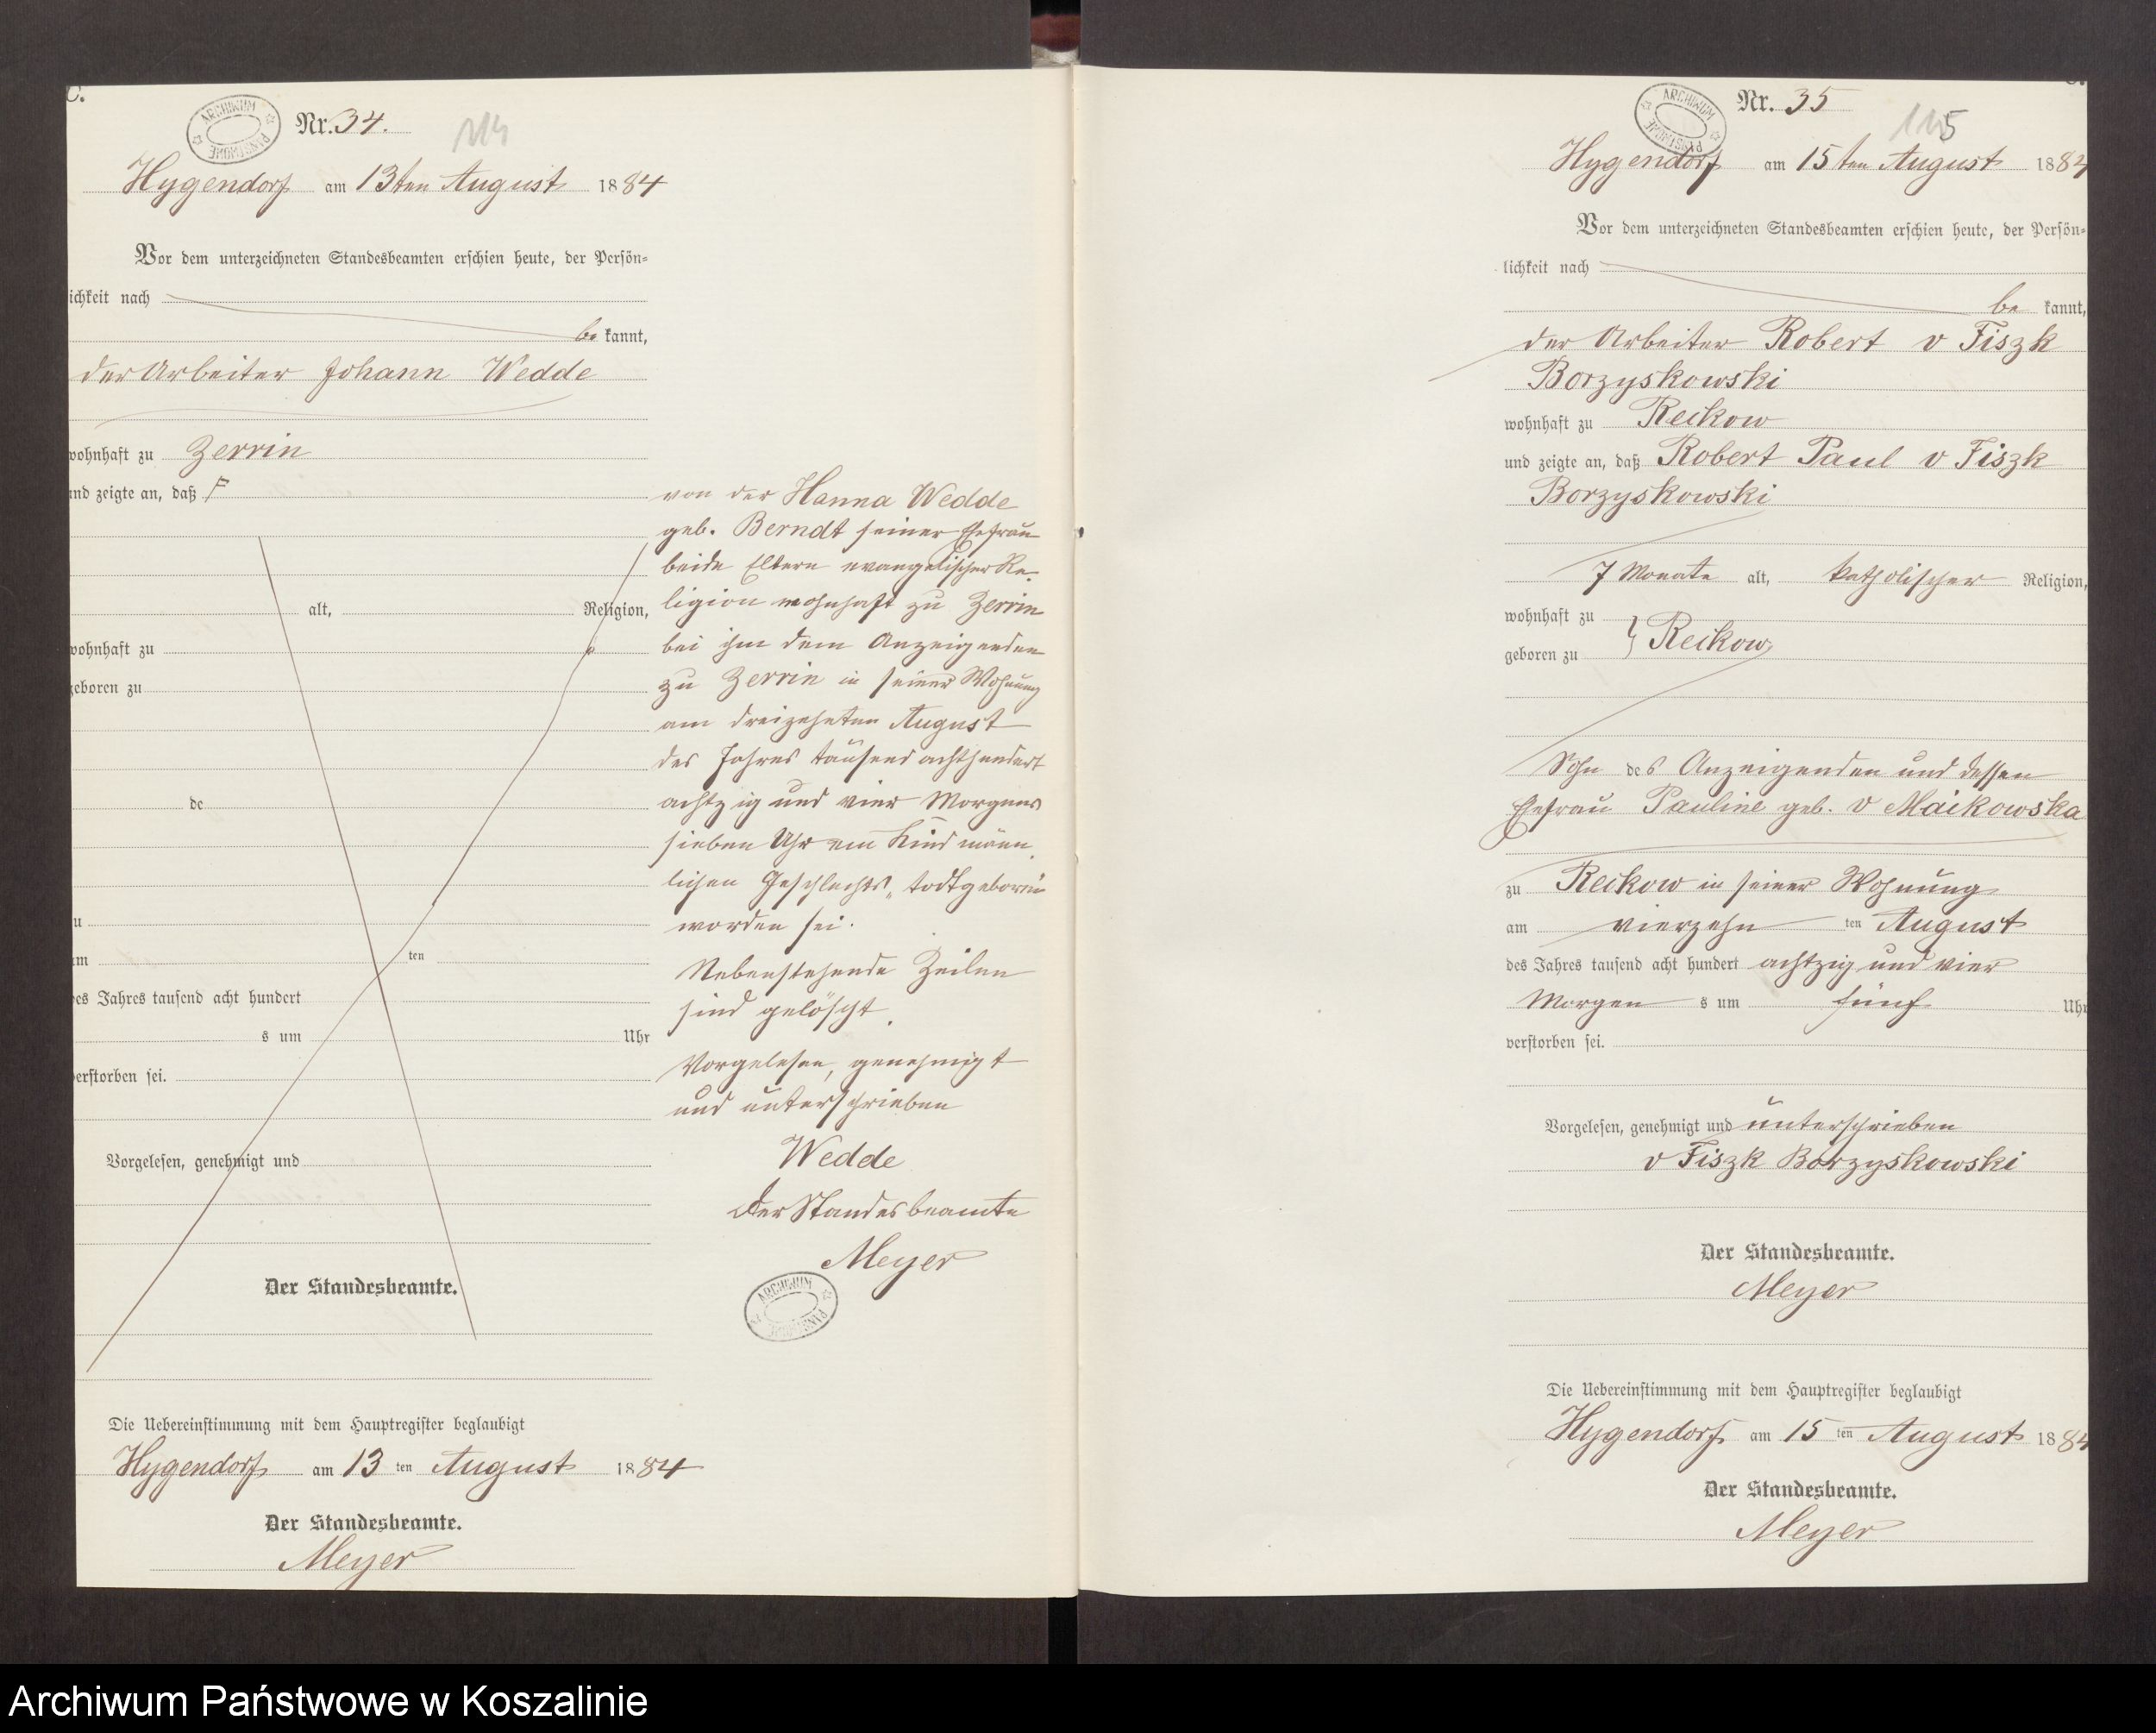 C.
ARCHIWUM PAŃSTWOWE
Nr. 34.
114
Hygendorf am 13ten August 1884
Vor dem unterzeichneten Standesbeamten erschien heute, der Persön=
ichkeit nach
be kannt,
der Arbeiter Johann Wedde
wohnhaft zu Zerrin
und zeigte an, daß
alt, Religion,
wohnhaft zu
geboren zu
de
zu
am ten
des Jahres tausend acht hundert
s um Uhr
verstorben sei.
Vorgelesen, genehmigt und
Der Standesbeamte.
von der Hanna Wedde
geb. Berndt seiner Ehefrau
beide Eltern evangelischer Re-
ligion wohnhaft zu Zerrin
bei ihm dem Anzeigenden
zu Zerrin in seiner Wohnung
am dreizehnten August
des Jahres tausend achthundert
achtzig und vier Morgens
sieben Uhr ein Kind männ
lichen Geschlechts, todtgeboren
worden sei.
Nebenstehende Zeilen
sind gelöscht.
Vorgelesen, genehmigt
und unterschrieben
Wedde
Der Standesbeamte
Meyer
ARCHIWUM PAŃSTWOWE
Die Uebereinstimmung mit dem Hauptregister beglaubigt
Hygendorf am 13 ten August 1884
Der Standesbeamte.
Meyer
ARCHIWUM PAŃSTWOWE
Nr. 35
115
Hygendorf am 15ten August 1884
Vor dem unterzeichneten Standesbeamten erschien heute, der Persön=
lichkeit nach
be kannt,
der Arbeiter Robert v Fiszk
Borzyskowski
wohnhaft zu Reckow
und zeigte an, daß Robert Paul v Fiszk
Borzyskowski
7 Monate alt, katholischer Religion,
wohnhaft zu
geboren zu } Reckow
Sohn des Anzeigenden und dessen
Ehefrau Pauline geb. v Maikowska
zu Reckow in seiner Wohnung
am vierzehn ten August
des Jahres tausend acht hundert achtzig und vier
Morgen s um fünf Uhr
verstorben sei.
Vorgelesen, genehmigt und unterschrieben
v Fiszk Borzyskowski
Der Standesbeamte.
Meyer
Die Uebereinstimmung mit dem Hauptregister beglaubigt
Hygendorf am 15 ten August 1884
Der Standesbeamte.
Meyer
Archiwum Państwowe w Koszalinie